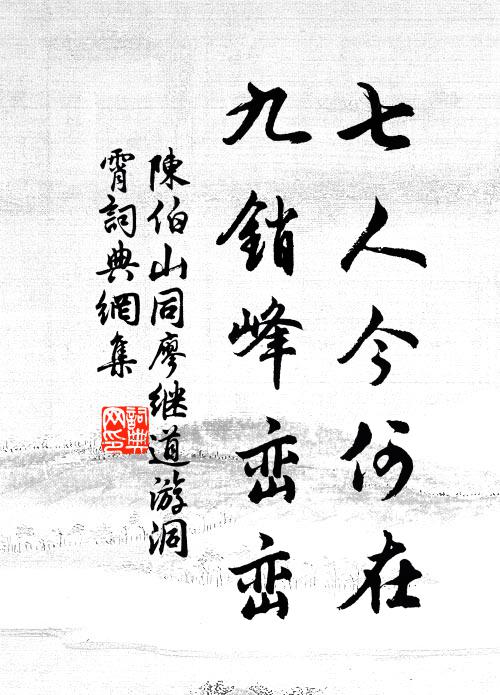 七人今何在
九銷峰峦峦
陳伯山同廖继道游洞
霄詞典網集
詞典网印